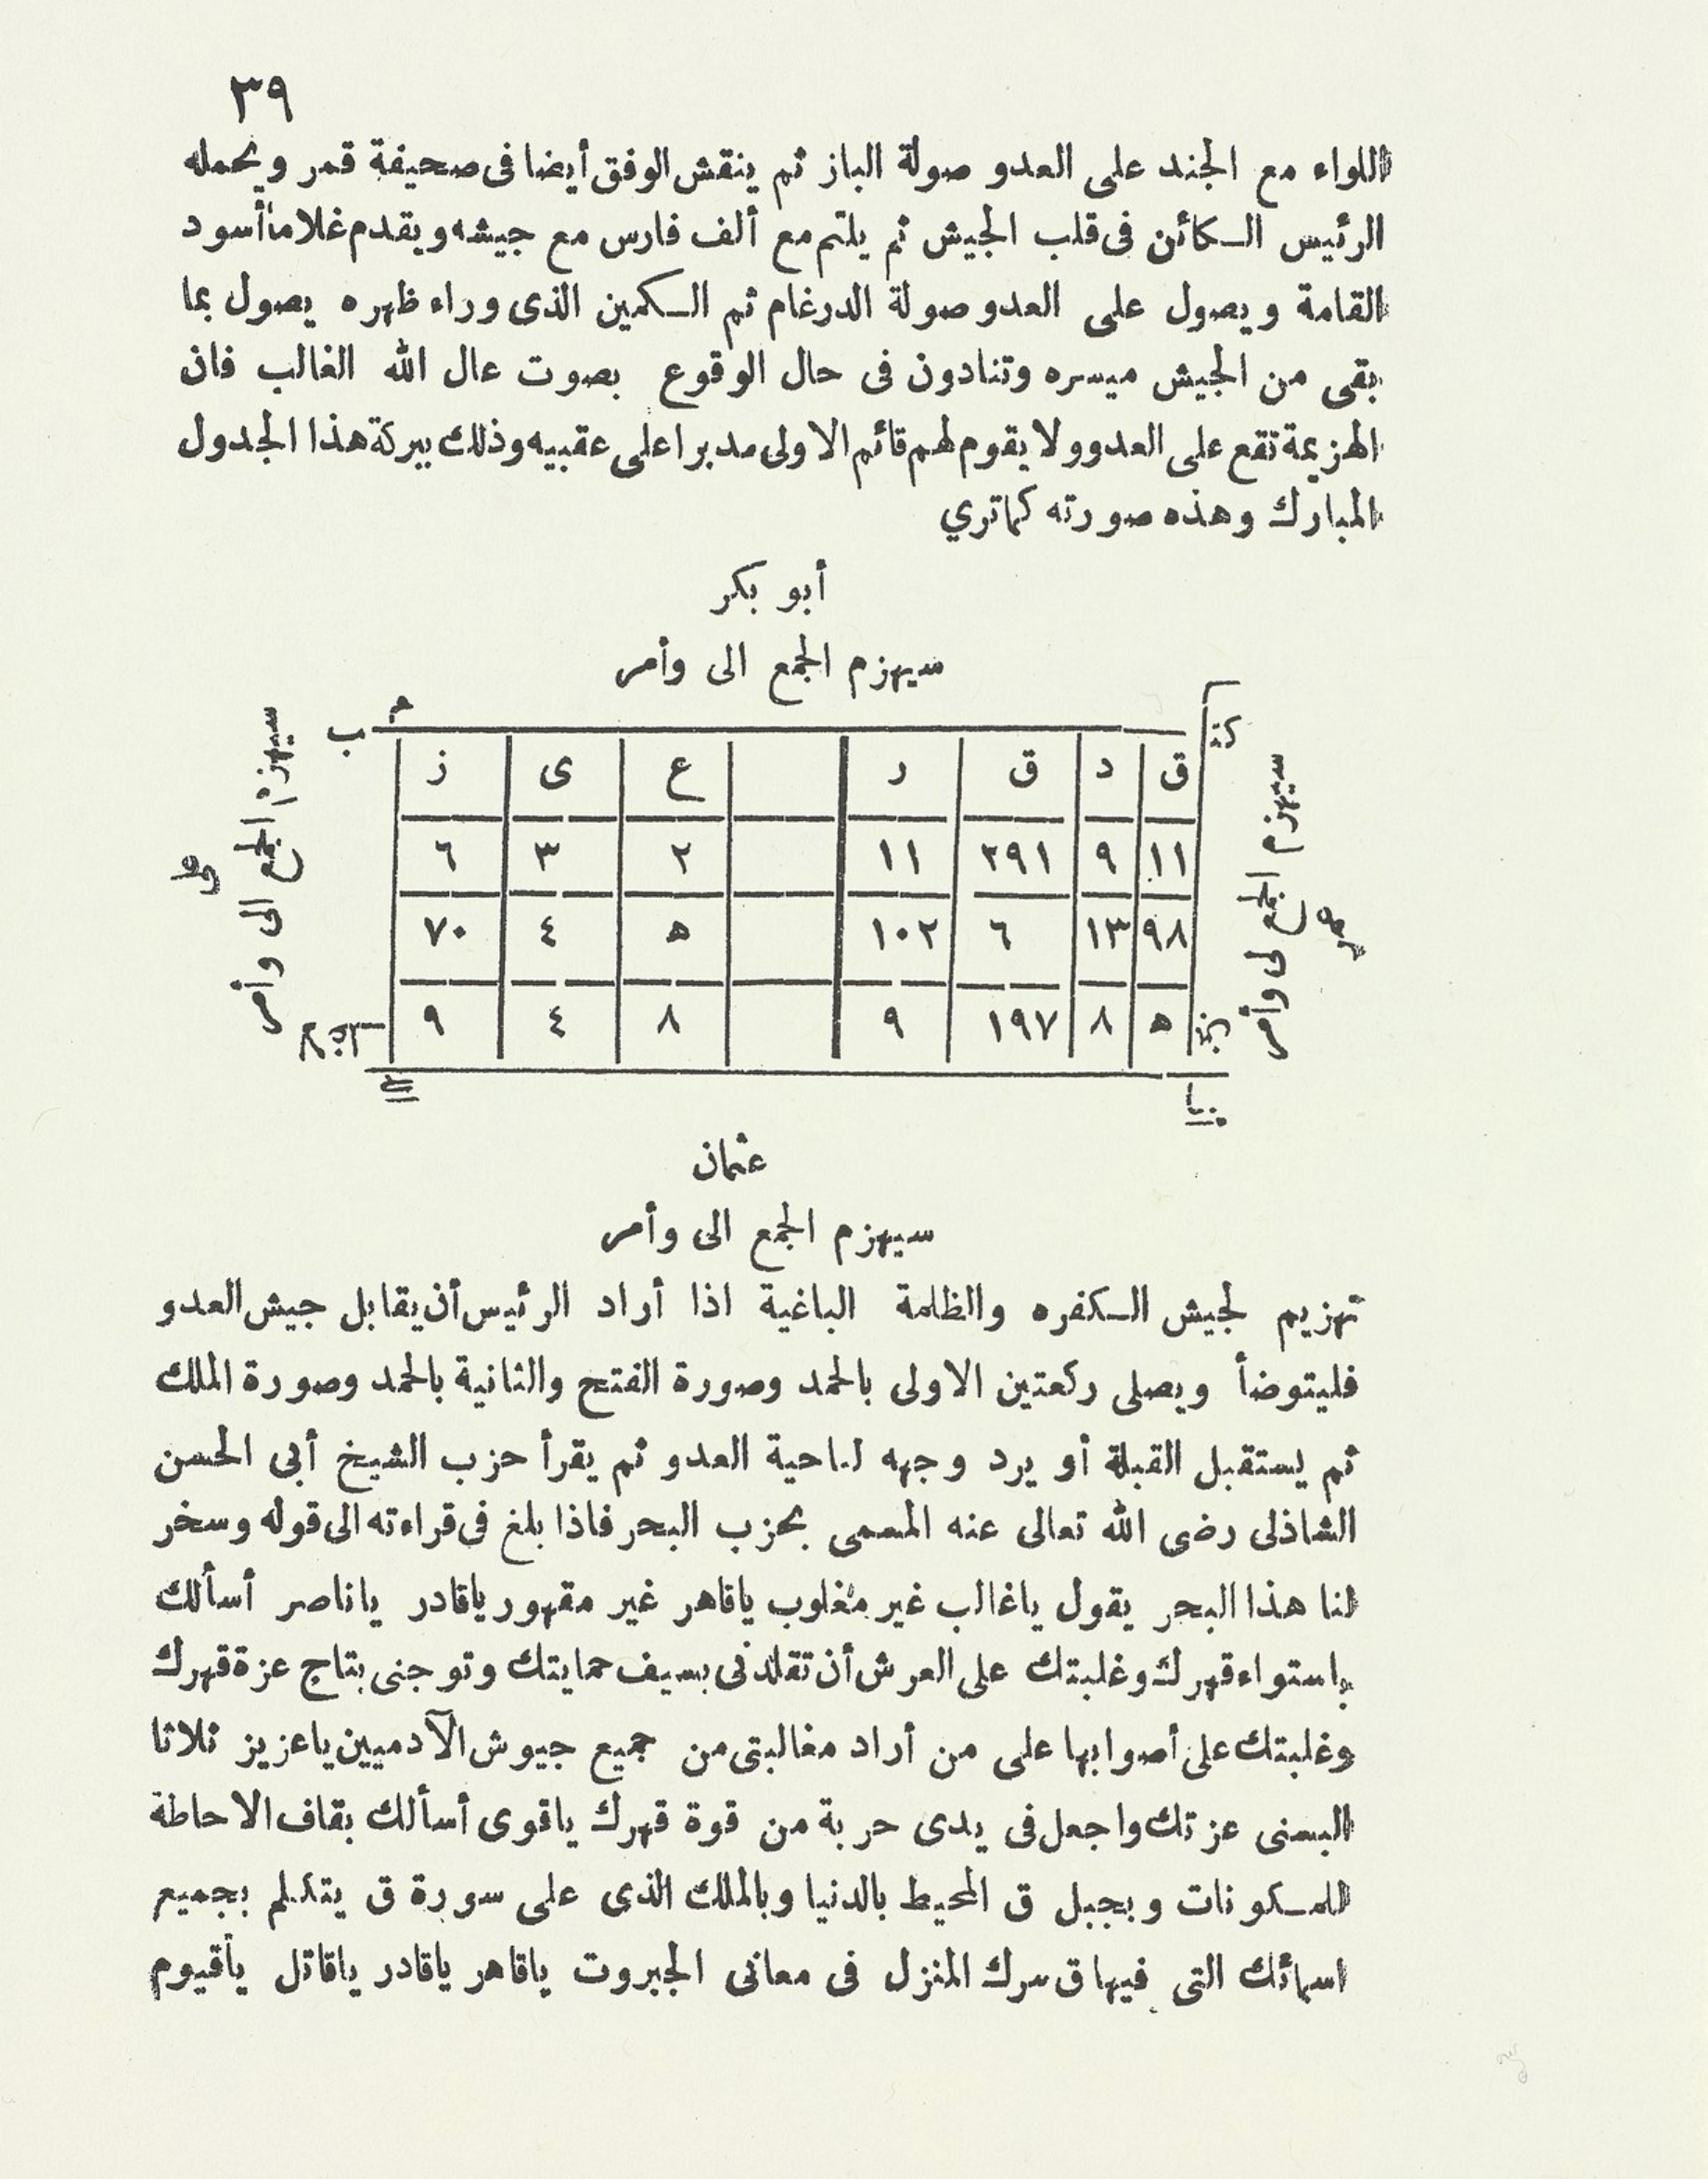 ٣٩
اللواء مع الجند على العدو صولة الباز ثم ينقش الوفق أيضا فى صحيفة قمر ويحمله
الرئيس الكائن فى قلب الجيش ثم يلتم مع ألف فارس مع جيشه ويقدم غلاما أسود
القامة ويصول على العدو صولة الدرغام ثم الكمين الذى وراء ظهره يصول بما
بقى من الجيش ميسره وتنادون فى حال الوقوع بصوت عال الله الغالب فان
الهزيمة تقع على العدوو ولا يقوم لهم قائم الاولى مدبرا على عقبيه وذلك ببركة هذا الجدول
المبارك وهذه صورته كماتري
أبو بكر
سيهزم الجمع الى وأمر
سيهزم الجمع لى وأمر
ق د ق ر ع ى ز
١١ ٩ ٢٩١ ١١ ٢ ٣ ٦
٩٨ ١٣ ٦ ١٠٢ ٥ ٤ ٧٠
٥ ٨ ١٩٧ ٩ ٨ ٤ ٩
سيهزم الجمع الى وأمر
عثمان
سيهزم الجمع الى وأمر
تهزيم لجيش الكفره والظلمة الباغية اذا أراد الرئيس أن يقابل جيش العدو
فليتوضأ ويصلى ركعتين الاولى بالحمد وصورة الفتح والثانية بالحمد وصورة الملك
ثم يستقبل القبلة أو يرد وجهه لناحية العدو ثم يقرأ حزب الشيخ أبى الحسن
الشاذلى رضى الله تعالى عنه المسمى بحزب البحر فاذا بلغ فى قراءته الى قوله وسخر
لنا هذا البحر يقول ياغالب غير مغلوب ياقاهر غير مقهور ياقادر ياناصر أسألك
باستواء قهرك وغلبتك على العرش أن تقلدنى بسيف حمايتك وتوجنى بتاج عزة قهرك
وغلبتك على أصوابها على من أراد مغالبتى من جميع جيوش الآدميين ياعزيز ثلاثا
البسنى عزتك واجعل فى يدى حربة من قوة قهرك ياقوى أسألك بقاف الاحاطة
للمكونات وبجبل ق المحيط بالدنيا وبالملك الذى على سورة ق يتكلم بجميع
اسمائك التى فيها ق سرك المنزل فى معانى الجبروت ياقاهر ياقادر ياقاتل ياقيوم